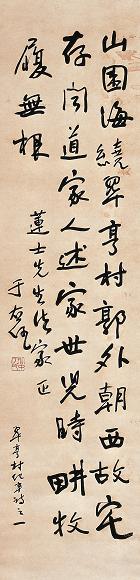 山圍海繞翠亨村郭外朝西故宅
存聞道家人述家世兒時畊牧
履無根
蓮士先生法家正
于右任
翠亨村紀事詩之一